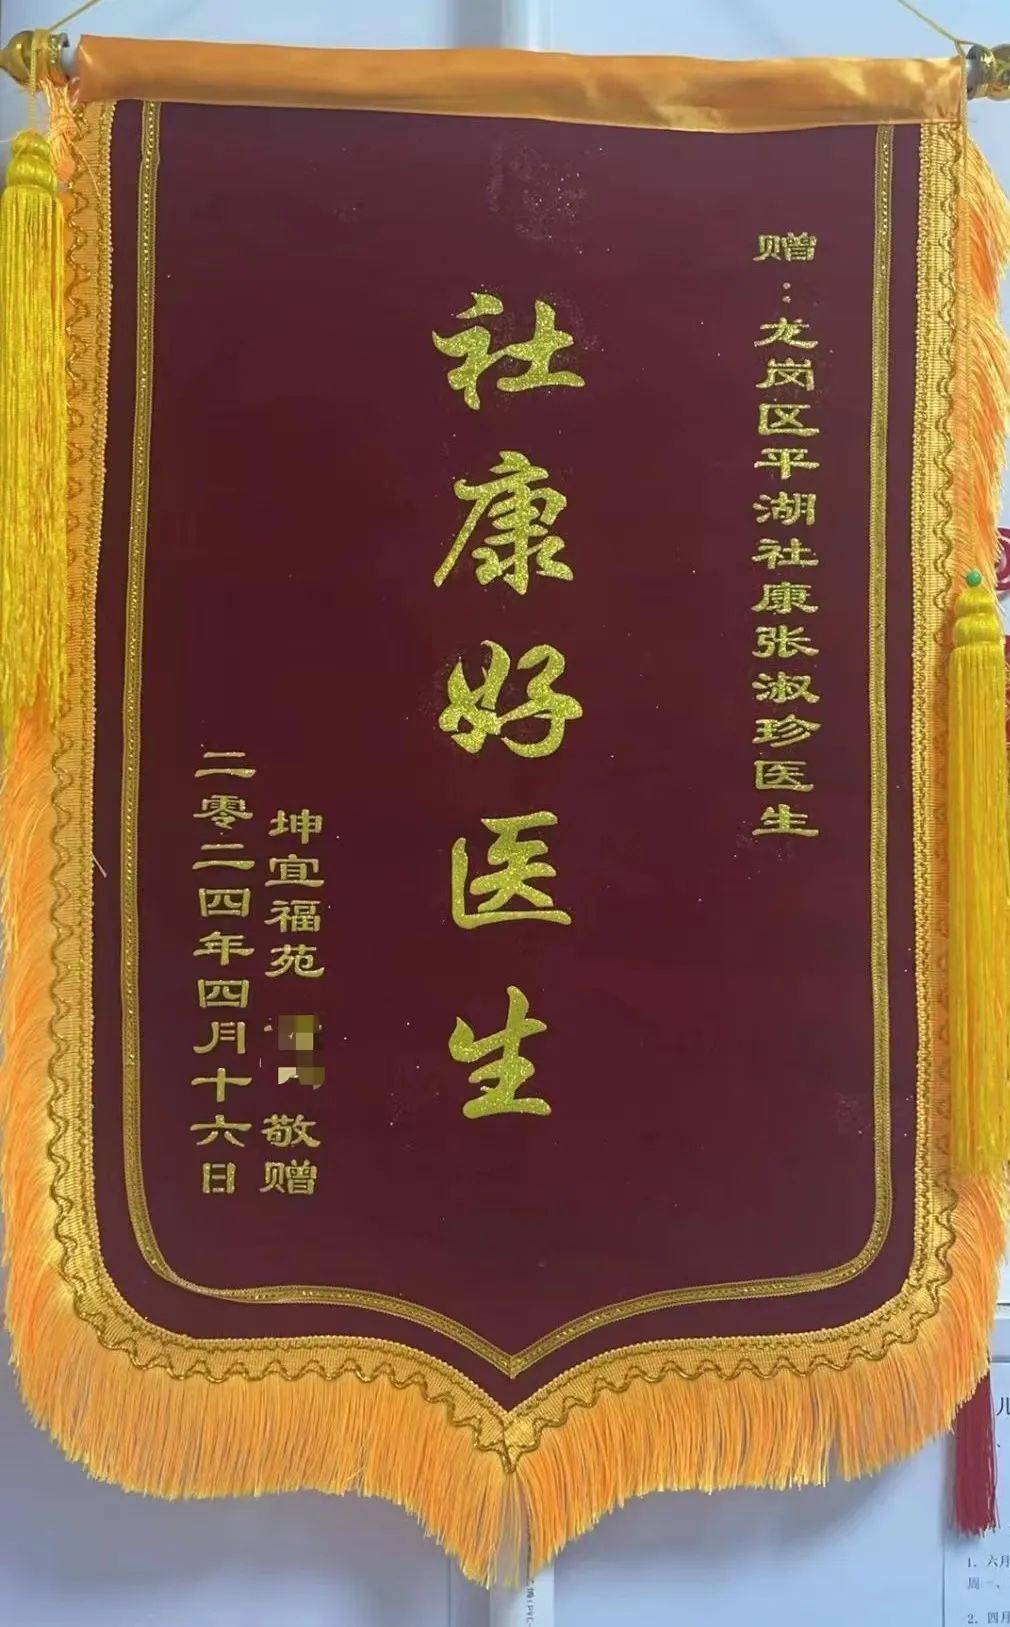 赠：龙岗区平湖社康张淑珍医生
社康好医生
坤宜福苑 敬赠
二零二四年四月十六日
儿
1. 六月
周一、
2. 四月